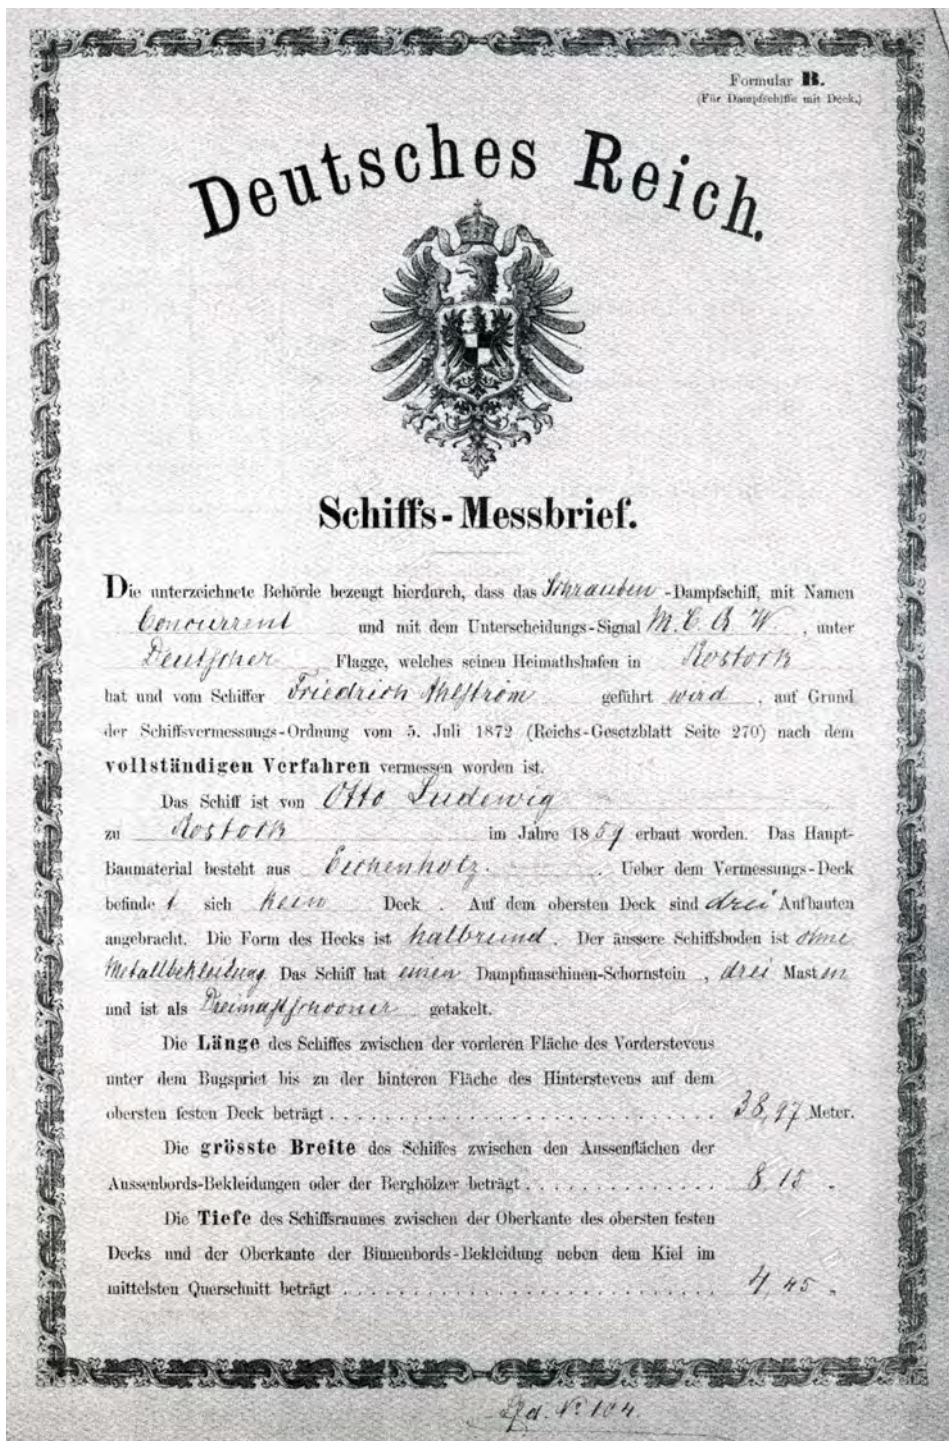 Formular B.
(Für Dampfschiffe mit Deck.)
Deutsches Reich.
Schiffs-Messbrief.
Die unterzeichnete Behörde bezeugt hierdurch, dass das Schrauben-Dampfschiff, mit Namen
Concurrent und mit dem Unterscheidungs-Signal M. C. B. W., unter
Deutscher Flagge, welches seinen Heimathshafen in Rostock
hat und vom Schiffer Friedrich Ahlström geführt wird, auf Grund
der Schiffsvermessungs-Ordnung vom 5. Juli 1872 (Reichs-Gesetzblatt Seite 270) nach dem
vollständigen Verfahren vermessen worden ist.
Das Schiff ist von Otto Ludewig
zu Rostock im Jahre 1859 erbaut worden. Das Haupt-
Baumaterial besteht aus Eichenholz. Ueber dem Vermessungs-Deck
befindet sich kein Deck. Auf dem obersten Deck sind drei Aufbauten
angebracht. Die Form des Hecks ist halbrund. Der äussere Schiffsboden ist ohne
Metallbekleidung. Das Schiff hat einen Dampfmaschinen-Schornstein, drei Masten
und ist als Dreimastschooner getakelt.
Die Länge des Schiffes zwischen der vorderen Fläche des Vorderstevens
unter dem Bugspriet bis zu der hinteren Fläche des Hinterstevens auf dem
obersten festen Deck beträgt . . . . . . . . . . 38,97 Meter.
Die grösste Breite des Schiffes zwischen den Aussenflächen der
Aussenbords-Bekleidungen oder der Berghölzer beträgt . . . . . . . . . . 8 15 "
Die Tiefe des Schiffsraumes zwischen der Oberkante des obersten festen
Decks und der Oberkante der Binnenbords-Bekleidung neben dem Kiel im
mittelsten Querschnitt beträgt . . . . . . . . . . 4,45 "
No 104.